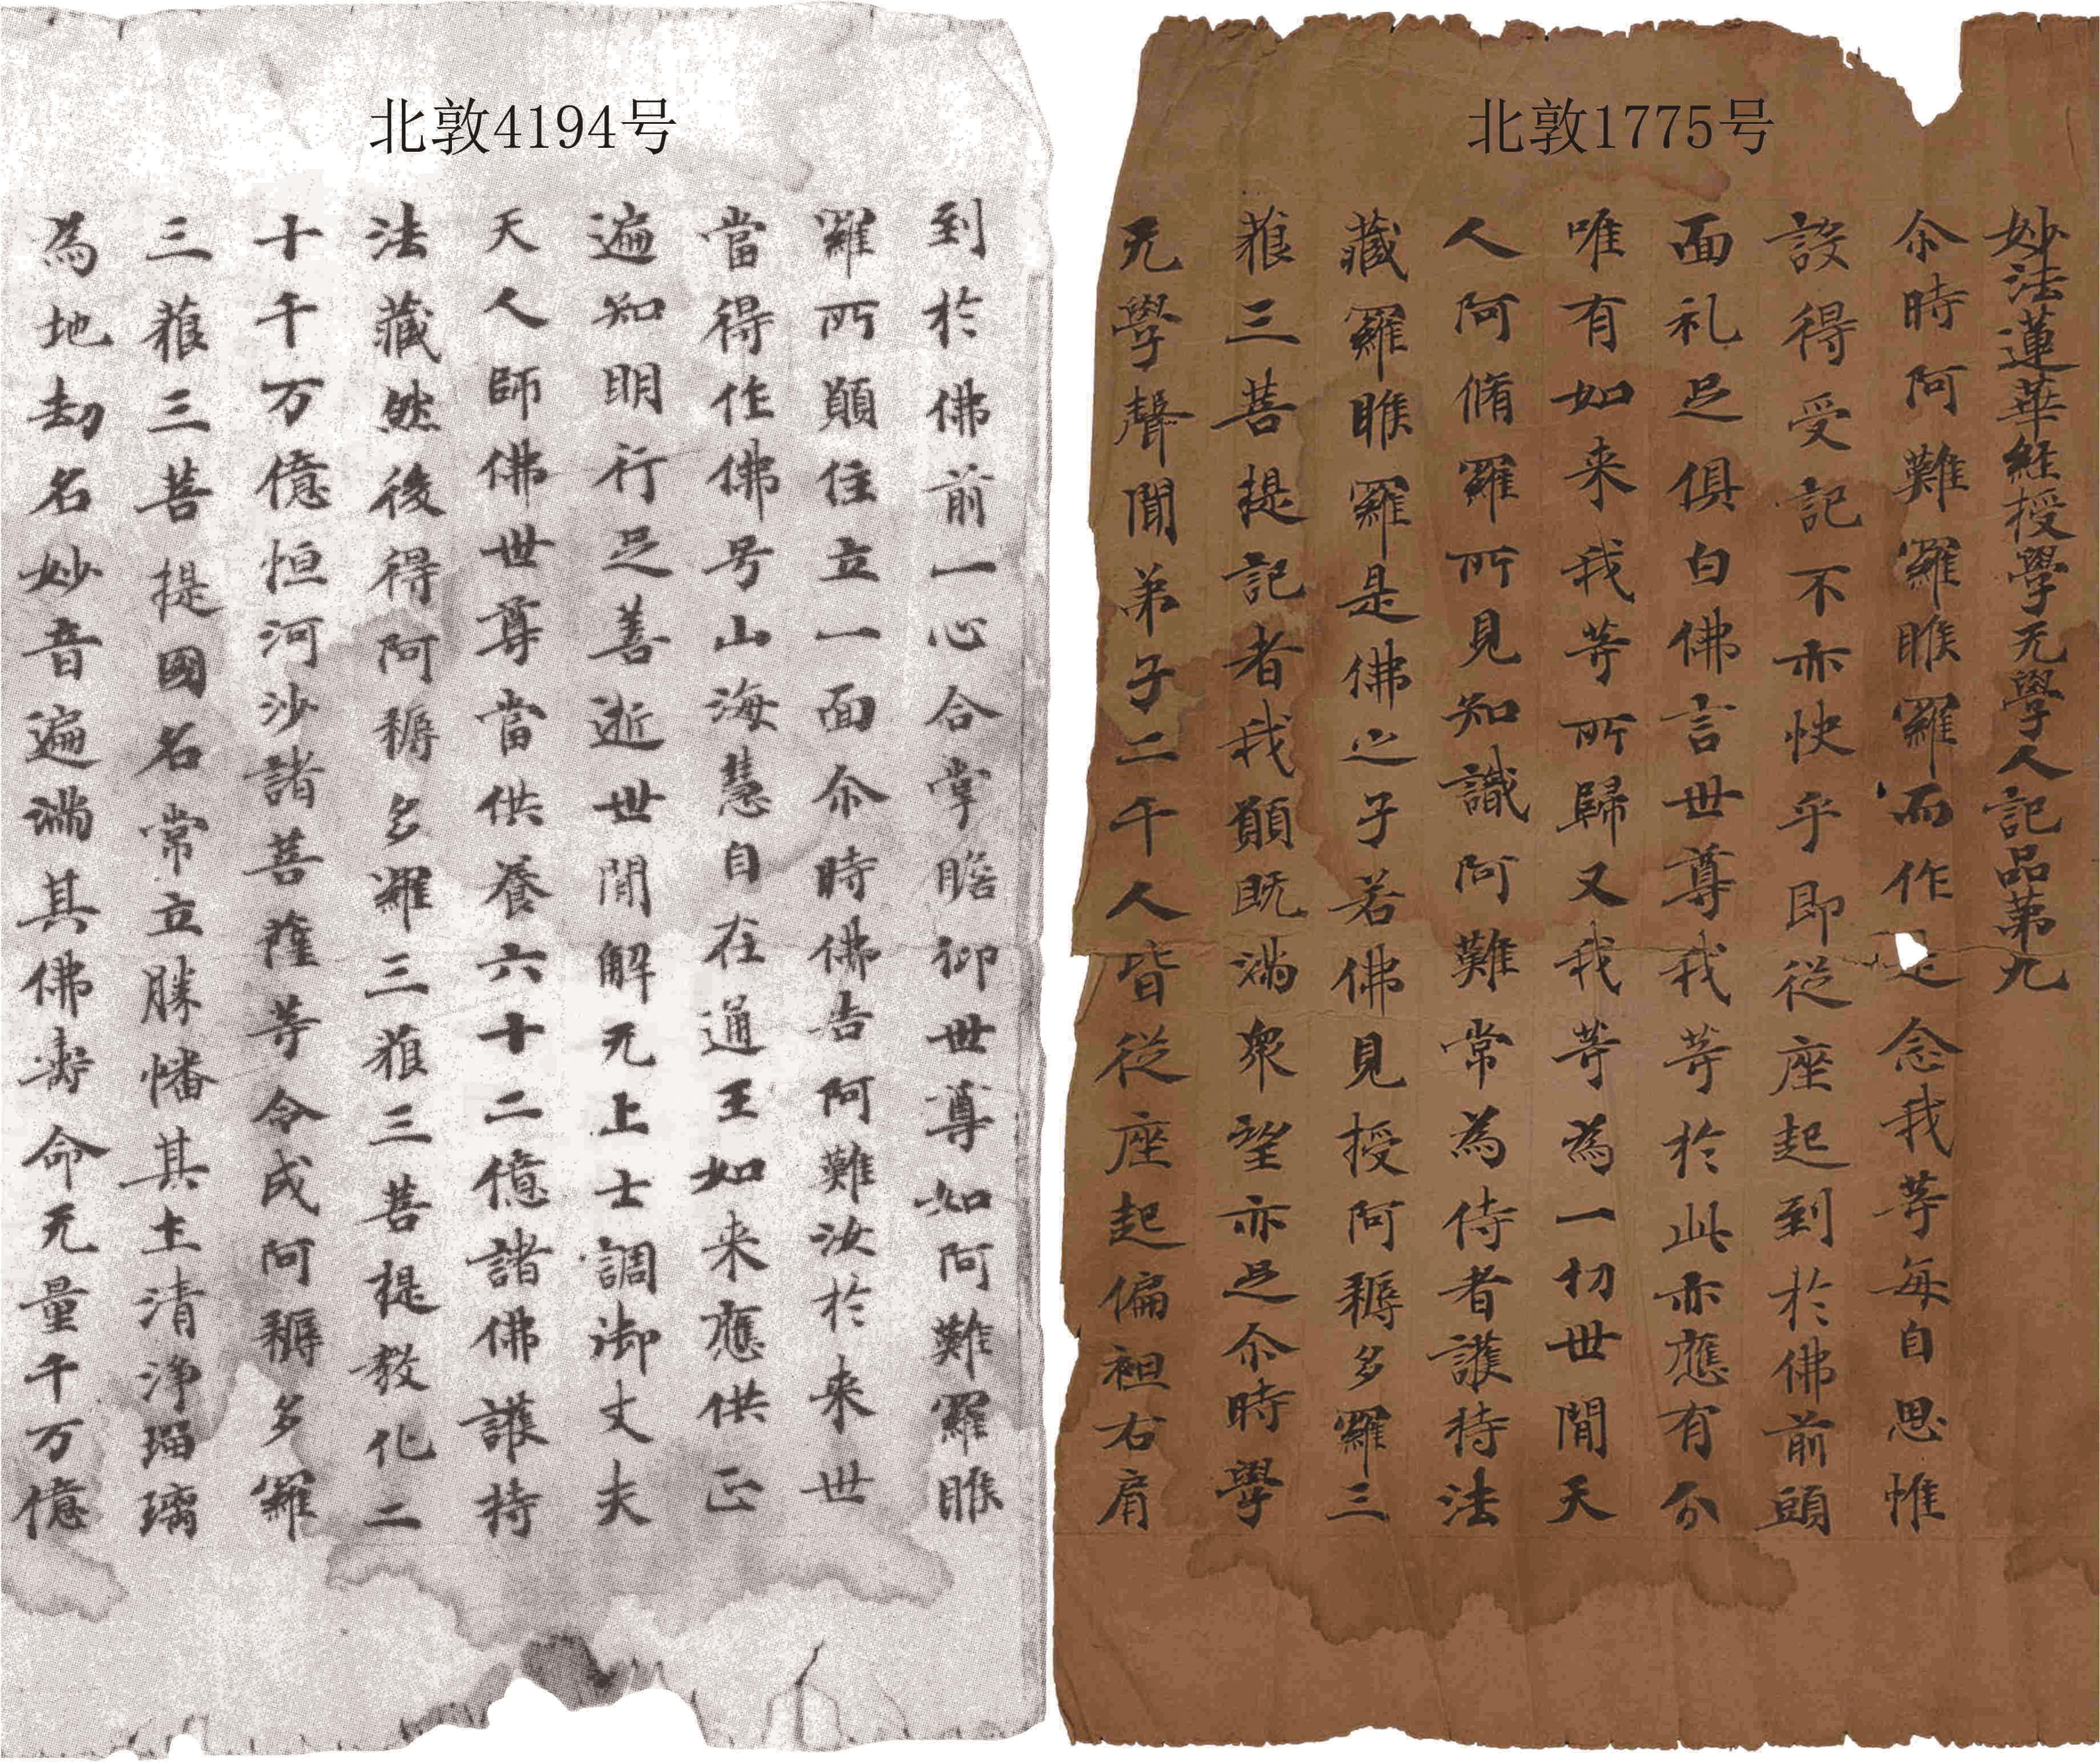 北敦1775号
妙法蓮華経授學无學人記品第九
尒時阿難羅睺羅而作是念我等每自思惟
設得受記不亦快乎即從座起到於佛前頭
面礼足俱白佛言世尊我等於此亦應有分
唯有如来我等所歸又我等為一切世間天
人阿脩羅所見知識阿難常為侍者護持法
藏羅睺羅是佛之子若佛見授阿耨多羅三
藐三菩提記者我願既滿衆望亦足尒時學
无學聲聞弟子二千人皆從座起偏袒右肩
北敦4194号
到於佛前一心合掌瞻仰世尊如阿難羅睺
羅所願住立一面尒時佛告阿難汝於来世
當得作佛号山海慧自在通王如来應供正
遍知明行足善逝世間解无上士調御丈夫
天人師佛世尊當供養六十二億諸佛護持
法藏然後得阿耨多羅三藐三菩提教化二
十千万億恒河沙諸菩薩等令成阿耨多羅
三藐三菩提國名常立勝幡其土清淨瑠璃
為地劫名妙音遍滿其佛壽命无量千万億